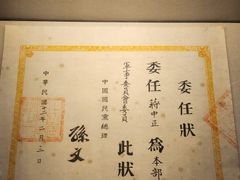 委任狀
委任 蔣中正 為本部
軍事委員會委員
此狀
中國國民黨總理
孫文
中華民國十二年二月三日